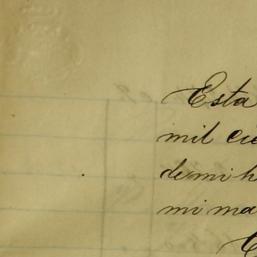 Esta
mil cie
de mi h
mi ma